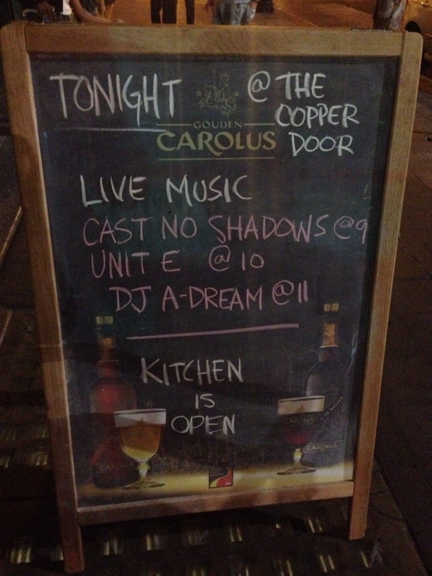 TONIGHT @ THE
COPPER
DOOR
GOUDEN
CAROLUS
LIVE MUSIC
CAST NO SHADOWS @9
UNITE @ 10
DJ A-DREAM @ 11
KITCHEN
IS
OPEN